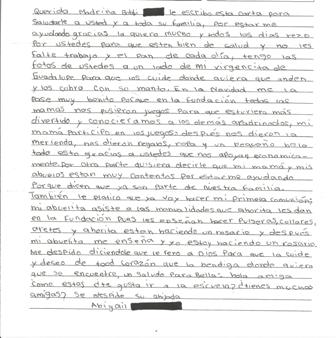 Querida Madrina Bobbi le escribo esta carta para
Saludarle a usted y a toda su familia, Por estarme
ayudando gracias la quiero mucho y todos los días rezo
Por ustedes para que esten bien de salud y no les
Falte trabajo y el pan de cada día, tengo las
fotos de ustedes a un lado de mi virgencita de
Guadalupe Para que los cuide donde quiera que anden
y los cubra con su manto. En la Navidad me la
Pase muy bonito Porque en la Fundación todas las
mamas nos pusieron juegos Para que estuviera más
divertido y conocieramos a los demás ahijados, mi
mamá Participo en los juegos: después nos dieron la
merienda, nos dieron regalos, ropa y un pequeño
todo esto gracias a ustedes que nos apoyan económica-
mente Por otra parte quisiera decirle que mi mamá y mis
abuelos estan muy contentos Por estarme ayudando
Porque dicen que ya son parte de nuestra familia.
También le platico que ya voy hacer mi Primera comunión;
mi abuelita asiste a las manualidades que ahorita les dan
en la Fundación Pues les enseñan hacer Pulseras, collares,
aretes y ahorita estan haciendo un rosario y después
mi abuelita me enseña y yo estoy haciendo un rosario.
Me despido diciendole que le Pero a Dios Para que la cuide
y deseo de todo corazón que la bendiga donde quiera
que se encuentre, un saludo Para Bella: hola amiga
Como estas ¿te gusta ir a la escuela? ¿tienes muchos
amigas? Se despide su ahijada
Abigail